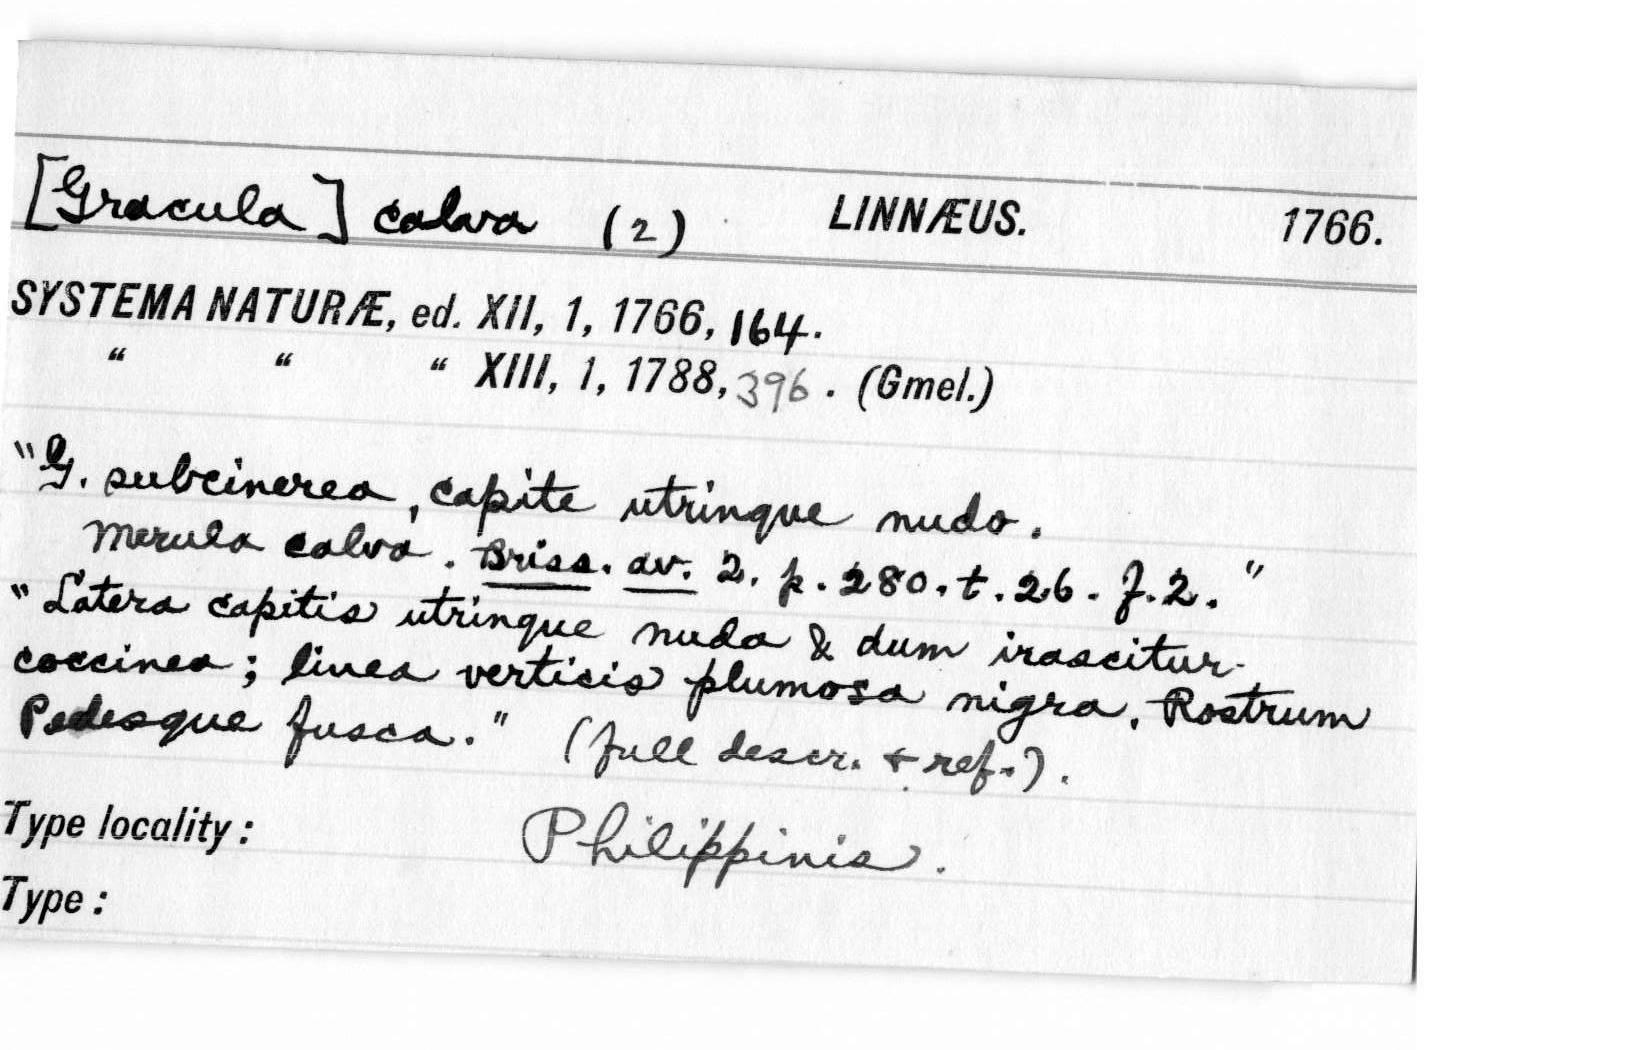 [Gracula] calva (2) LINNÆUS. 1766.
SYSTEMA NATURÆ, ed. XII, 1, 1766, 164.
“ “ “ XIII, 1, 1788, 396. (Gmel.)
"G. subcinerea, capite utrinque nudo.
Merula calva. Briss. av. 2. p. 280. t. 26. f. 2."
"Latera capitis utrinque nuda & dum irascitur
coccinea; linea verticis plumosa nigra. Rostrum
Pedesque fusca." (full descr. & ref.).
Type locality: Philippinis.
Type: